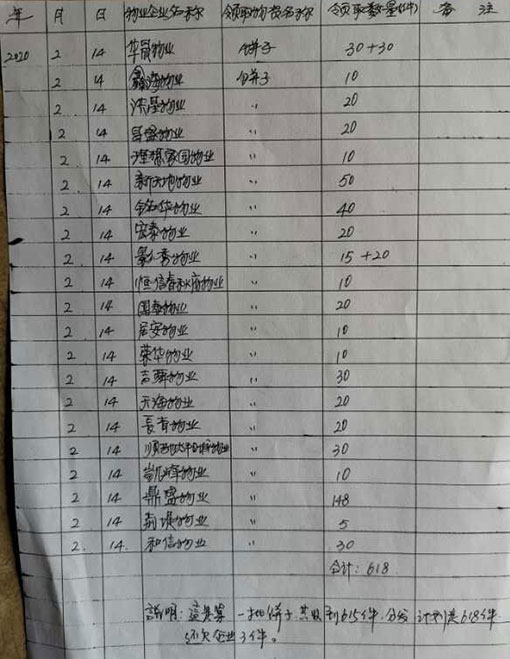 年 月 日 物业企业名称 领取物资名称 领取数量(件) 备 注
2020 2 14 华晨物业 饼子 30+30
2 14 鑫海物业 饼子 10
2 14 物业 〃 20
2 14 物业 〃 20
2 14 理想家园物业 〃 10
2 14 新天地物业 〃 50
2 14 铭华物业 〃 40
2 14 宏泰物业 〃 20
2 14 物业 〃 15+20
2 14 恒信春秋府物业 〃 10
2 14 国泰物业 〃 20
2 14 居安物业 〃 10
2 14 荣华物业 〃 10
2 14 吉舜物业 〃 30
2 14 天海物业 〃 20
2 14 长青物业 〃 20
2 14 物业 〃 30
2 14 凯峰物业 〃 10
2 14 鼎盛物业 〃 148
2 14 物业 〃 5
2 14 和信物业 〃 30
合计:618
说明:这是第一批饼子,共收到615件,分发计划是618件
还欠企业3件。